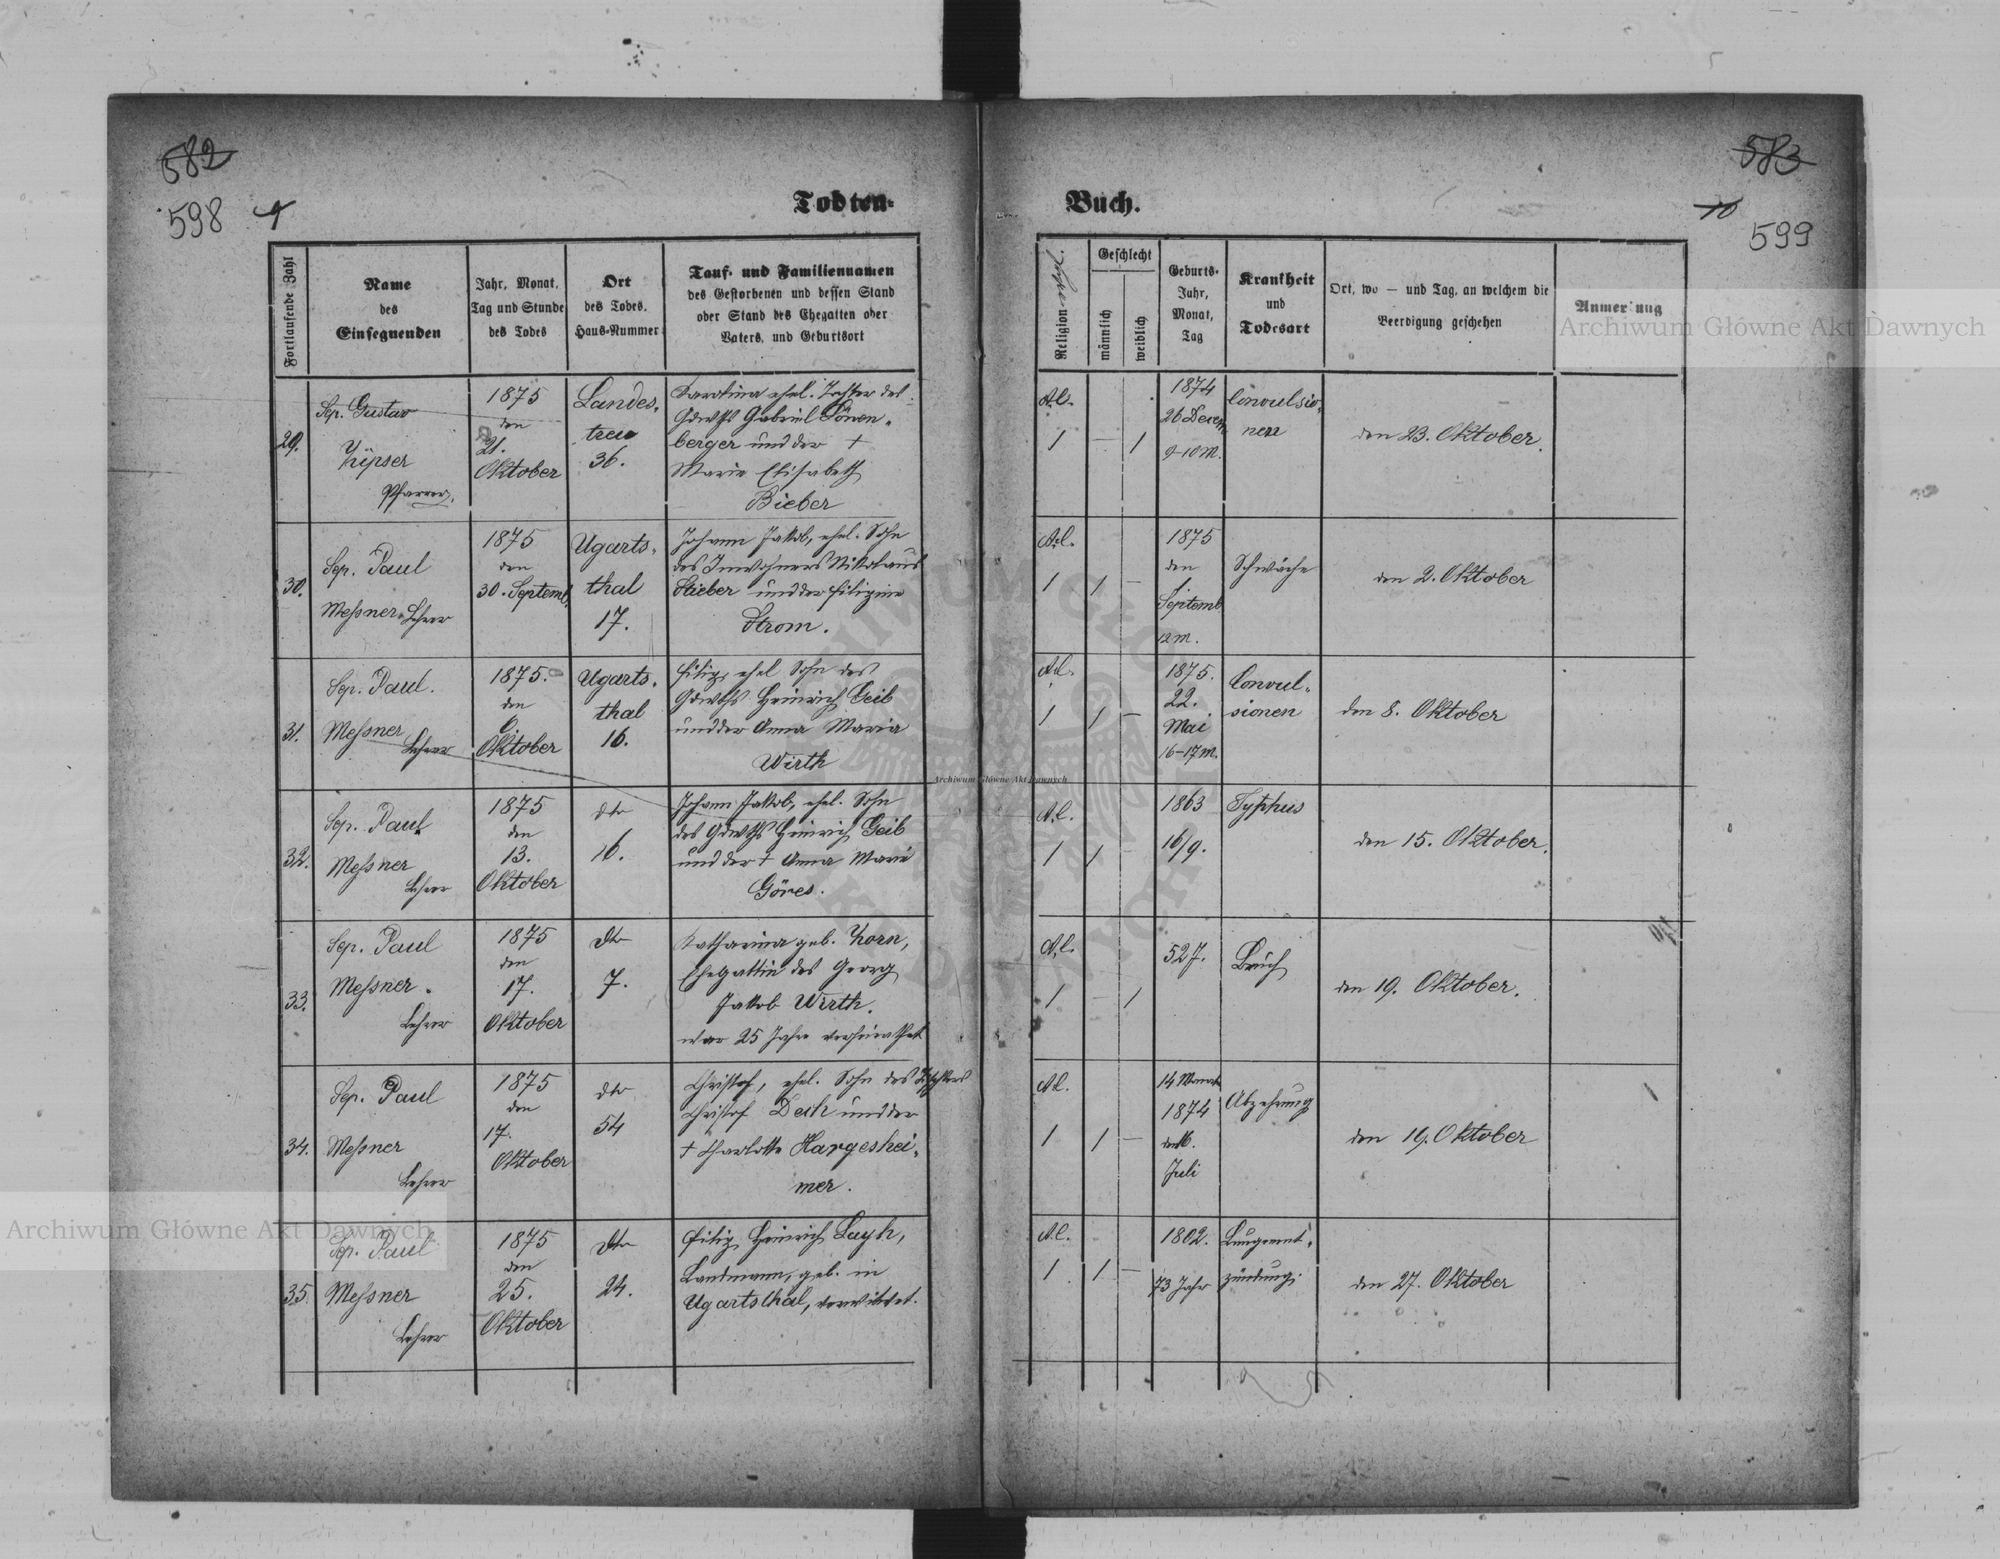 582
598
9
Todten-
Fortlaufende Zahl
Name
des
Einsegnenden
Jahr, Monat,
Tag und Stunde
des Todes
Ort
des Todes,
Haus-Nummer
Tauf- und Familiennamen
des Gestorbenen und dessen Stand
oder Stand des Ehegatten oder
Vaters, und Geburtsort
29.
Sep. Gustav
Zipser
Pfarrer.
1875
den
21.
Oktober
Landes-
treu
36.
Karolina ehel. Tochter des
Gdwths Gabriel Sönen-
berger und der †
Marie Elisabeth
Bieber
30.
Sep. Paul
Messner Lehrer
1875
den
30. Septemb.
Ugarts-
thal
17.
Johann Jakob, ehel. Sohn
des Inwohners Nikolaus
Stieber und der Filipine
Strom.
31.
Sep. Paul.
Messner
Lehrer
1875.
den
6.
Oktober
Ugarts-
thal
16.
Filip, ehel Sohn des
Gdwths Heinrich Geib
und der Anna Maria
Wirth
32.
Sep. Paul
Messner
Lehrer
1875
den
13.
Oktober
dto
16.
Johann Jakob, ehel. Sohn
des Gdwths Heinrich Geib
und der † Anna Marie
Göres.
33.
Sep. Paul
Messner.
Lehrer
1875
den
17.
Oktober
dto
7.
Katharina geb. Zorn,
Ehegattin des Georg
Jakob Wirth.
war 25 Jahre verheirathet
34.
Sep. Paul
Messner
Lehrer
1875
den
17.
Oktober
dto
54
Christof, ehel. Sohn des
Christof und der
† Charlotte Hargeshei-
mer.
35.
Sep. Paul
Messner
Lehrer
1875
den
25.
Oktober
dto
24.
Filip Heinrich Layh,
Landmann, geb. in
Ugartsthal, verwitwet.
583
10
599
Buch.
Religion
Geschlecht
männlich
weiblich
Geburts-
Jahr,
Monat,
Tag
Krankheit
und
Todesart
Ort, wo — und Tag, an welchem die
Beerdigung geschehen
Anmerkung
A.C.
1 – 1
1874
26 Decem.
9-10 M.
Convulsio-
nen
den 23. Oktober.
A.C.
1 1 –
1875
den
1.
Septemb.
12 M.
Schwäche
den 2. Oktober
A.C.
1 1 –
1875.
22.
Mai
16-17 M.
Convul-
sionen
den 8. Oktober
A.C.
1 1 –
1863
16/9.
Typhus
den 15. Oktober.
A.C.
1 – 1
52 J.
Bruch
den 19. Oktober.
A.C.
1 1 –
14 Monate
1874
den 16.
Juli
Abzehrung
den 19. Oktober
A.C.
1 1 –
1802.
73 Jahr
Lungenent-
zündung.
den 27. Oktober
Archiwum Główne Akt Dawnych
Archiwum Główne Akt Dawnych
Archiwum Główne Akt Dawnych